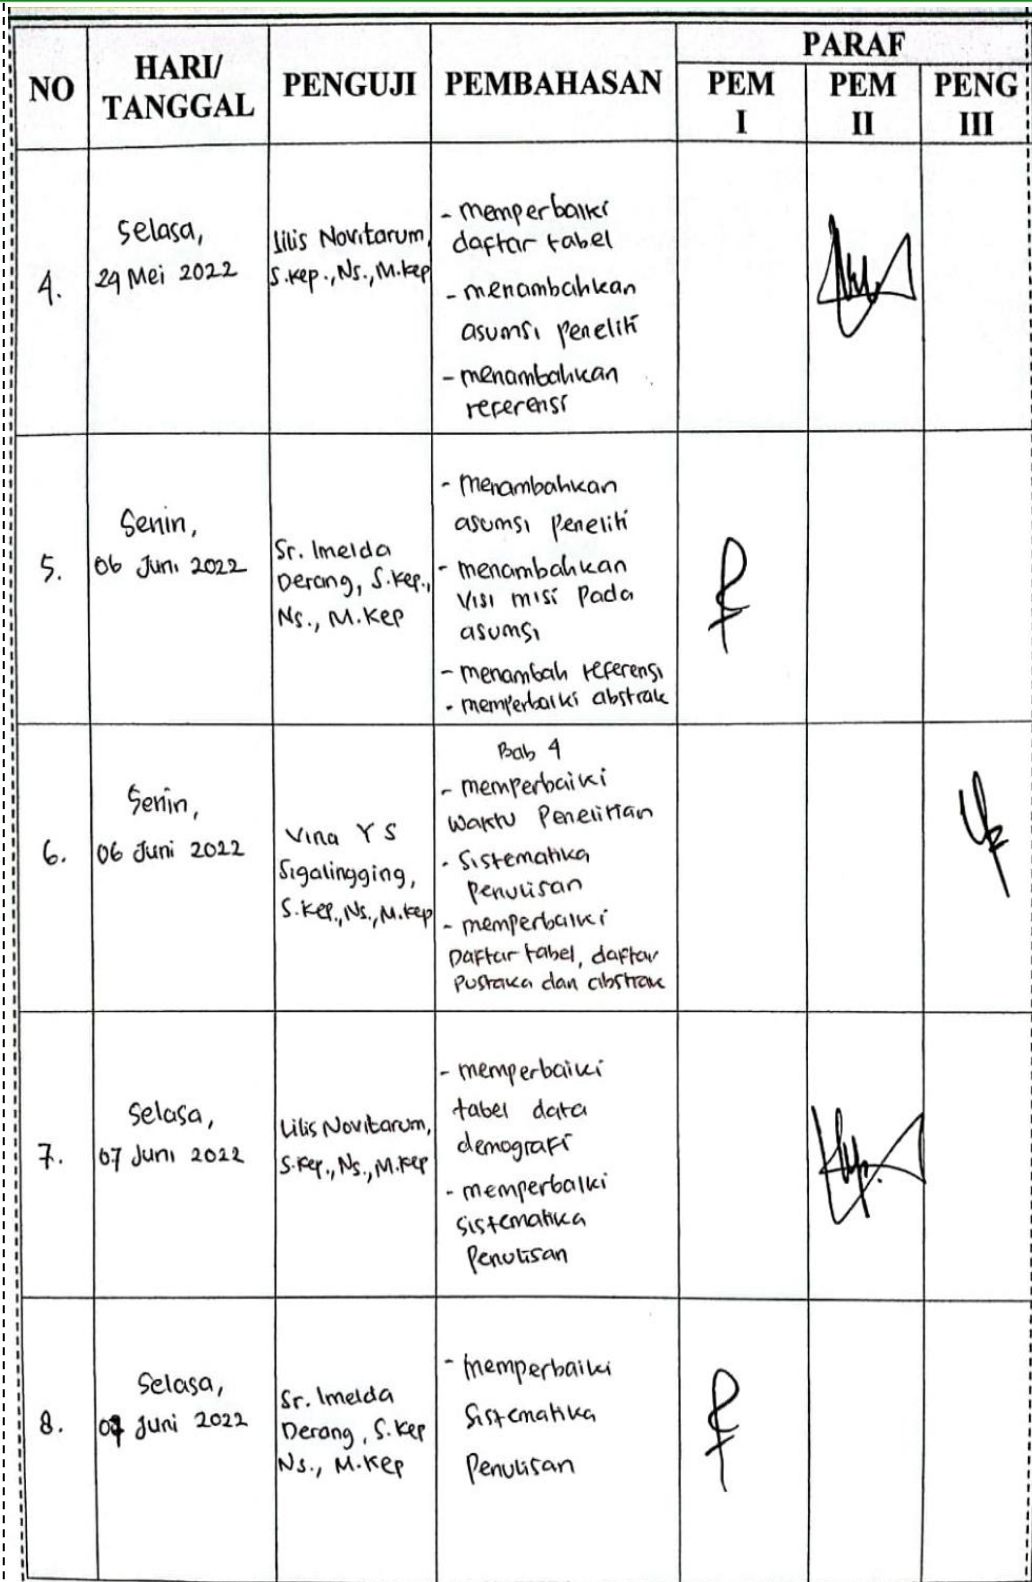 NO
HARI/
TANGGAL
PENGUJI
PEMBAHASAN
PARAF
PEM
I
PEM
II
PENG
III
4.
Selasa,
29 Mei 2022
Lilis Novitarum,
S.Kep.,Ns.,M.Kep
- memperbaiki
daftar tabel
- menambahkan
asumsi peneliti
- menambahkan
referensi
5.
Senin,
06 Juni 2022
Sr. Imelda
Derang, S.Kep.,
Ns., M.Kep
- Menambahkan
asumsi peneliti
- menambahkan
Visi misi pada
asumsi
- menambah referensi
- memperbaiki abstrak
6.
Senin,
06 Juni 2022
Vina Y S
Sigalingging,
S.Kep.,Ns.,M.Kep
Bab 4
- memperbaiki
Waktu Penelitian
- Sistematika
Penulisan
- memperbaiki
Daftar tabel, daftar
Pustaka dan abstrak
7.
Selasa,
07 Juni 2022
Lilis Novitarum,
S.Kep.,Ns.,M.Kep
- memperbaiki
tabel data
demografi
- memperbaiki
Sistematika
Penulisan
8.
Selasa,
07 Juni 2022
Sr. Imelda
Derang, S.Kep
Ns., M.Kep
- memperbaiki
Sistematika
Penulisan